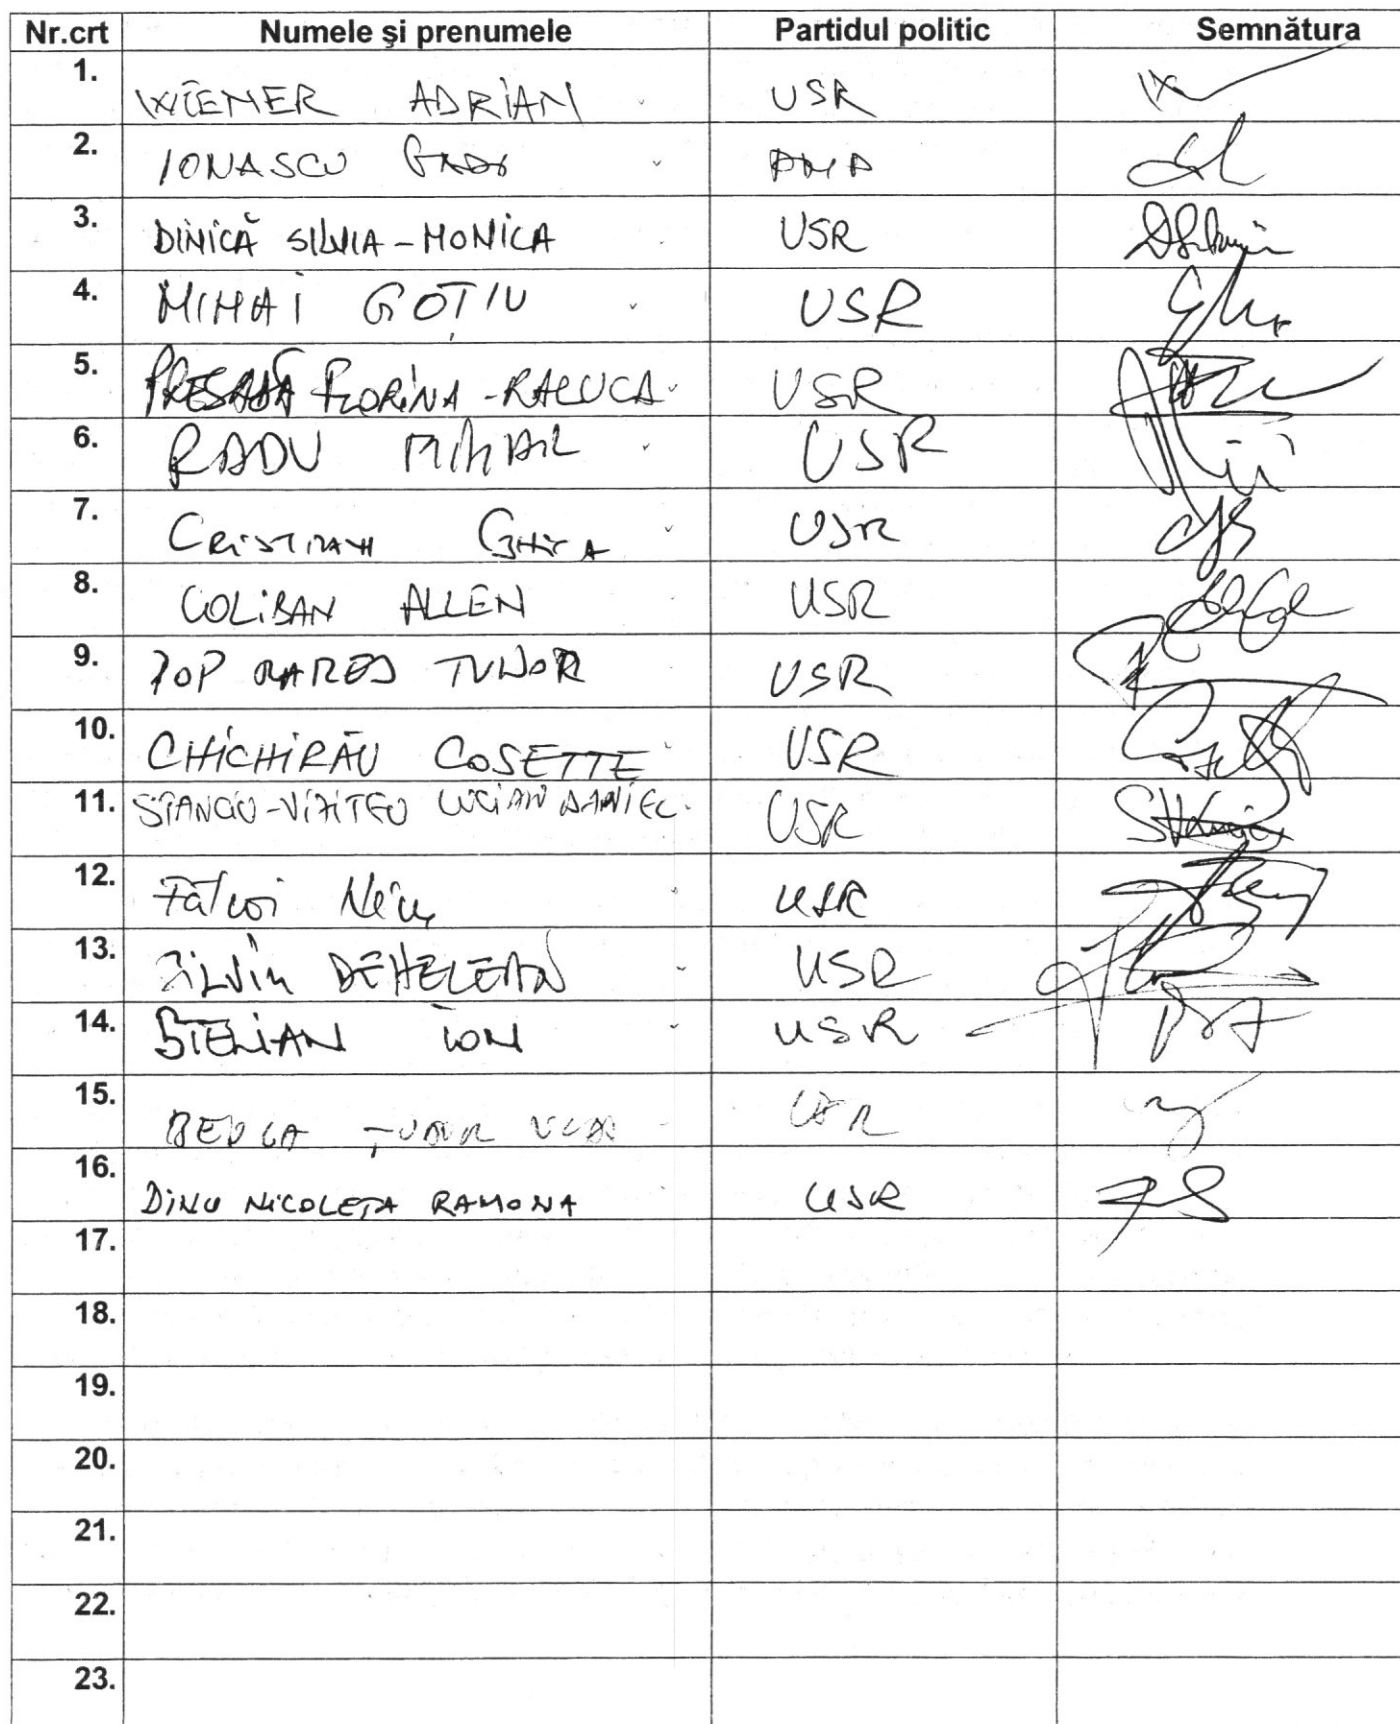 Nr.crt Numele şi prenumele Partidul politic Semnătura
1. WIENER ADRIAN USR
2. IONASCU GABI
3. DINICĂ SILVIA-MONICA USR
4. MIHAI GOȚIU USR
5. PRESADĂ FLORINA-RALUCA USR
6. RADU MIHAIL USR
7. CRISTIAN GHICA USR
8. COLIBAN ALLEN USR
9. POP RAREȘ TUDOR USR
10. CHICHIRĂU COSETTE USR
11. STANCIU-VIZITEU LUCIAN DANIEL USR
12. Fălcoi Nicu USR
13. SILVIU DEHELEAN USR
14. STELIAN ION USR
15. BENGA TUDOR VLAD USR
16. DINU NICOLETA RAMONA USR
17.
18.
19.
20.
21.
22.
23.